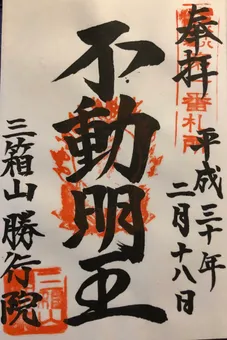 奉拝
平成三十年
二月十八日
不動明王
三箱山勝行院